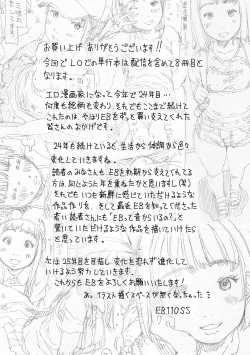 お買い上げ ありがとうございます!!
今回でLOでの単行本は配信を含めて8冊目と
なります。
エロ漫画家になって今年で24年目…
何度も
これたのは、やはりEBをずっと買い支えてくれた
皆さんのおかげです。
24年も続けていると 生活から体調から色々
変化していきますね。
読者のみなさんも EBを初期から支えてくれてる
方は同じように年を重ねたかと思いますし(笑)
それでも いつも新鮮に感じていただけるような
作品作りを、そして最近EBを知ってくださった
若い読者さんにも「EBって昔からいるの?」と
驚いていただけるような作品を描いていけたら
と思っています。
次は25年目を目指し 変化を恐れず進化して
いけるよう努力していきます。
これからもEBをよろしくお願いいたします!
あ。イラスト描くスペースが無くなっちゃった
EB110SS